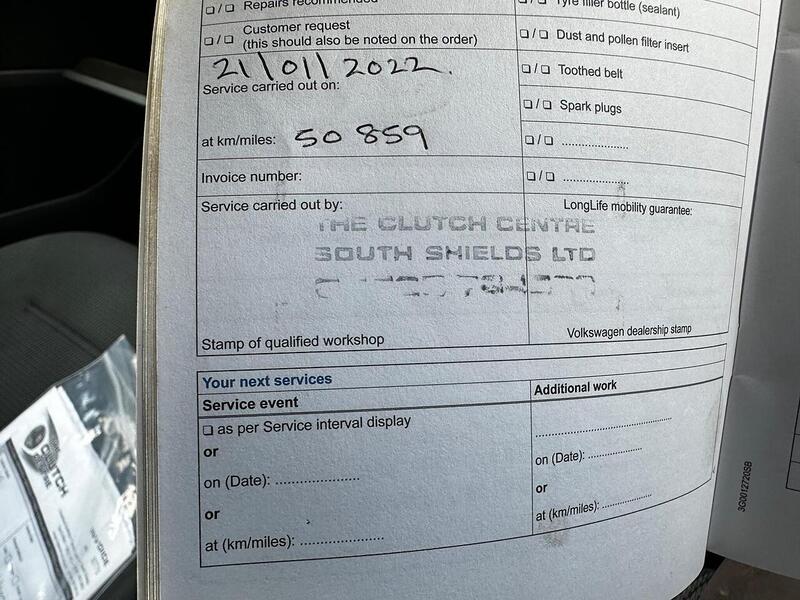 Repairs recommended
Tyre filler bottle (sealant)
Customer request
(this should also be noted on the order)
Dust and pollen filter insert
21/01/2022.
Service carried out on:
Toothed belt
Spark plugs
at km/miles: 50 859
Invoice number:
Service carried out by:
LongLife mobility guarantee:
THE CLUTCH CENTRE
SOUTH SHIELDS LTD
Stamp of qualified workshop
Volkswagen dealership stamp
Your next services
Service event
Additional work
as per Service interval display
or
on (Date):
or
at (km/miles):
on (Date):
or
at (km/miles):
3G0012720SB
CLUTCH
INVOICE